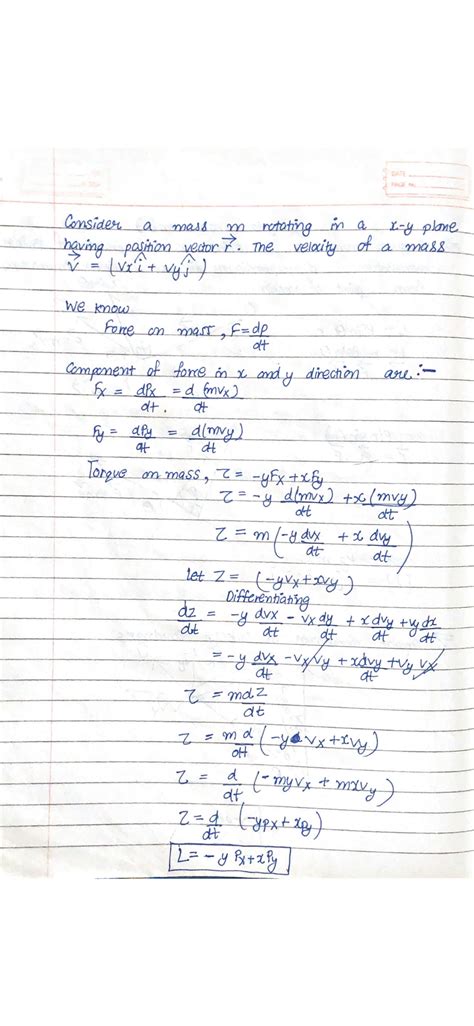 DATE
PAGE No.
Consider a mass m rotating in a x-y plane
having position vector r⃗. The velocity of a mass
v⃗ = (vx î + vy ĵ)
We know
Force on mass, F = dp/dt
Component of force in x and y direction are :-
Fx = dPx/dt. = d(mvx)/dt
Fy = dPy/dt = d(mvy)/dt
Torque on mass, τ = -yFx + xFy
τ = -y d(mvx)/dt + x(mvy)/dt
τ = m(-y dvx/dt + x dvy/dt)
let Z = (-yvx + xvy)
Differentiating
dz/dt = -y dvx/dt - vx dy/dt + x dvy/dt + vy dx/dt
= -y dvx/dt - vx vy + x dvy/dt + vy vx
τ = m dz/dt
τ = m d/dt (-y vx + xvy)
τ = d/dt (-myvx + mxvy)
τ = d/dt (-ypx + xpy)
L = -y Px + x Py